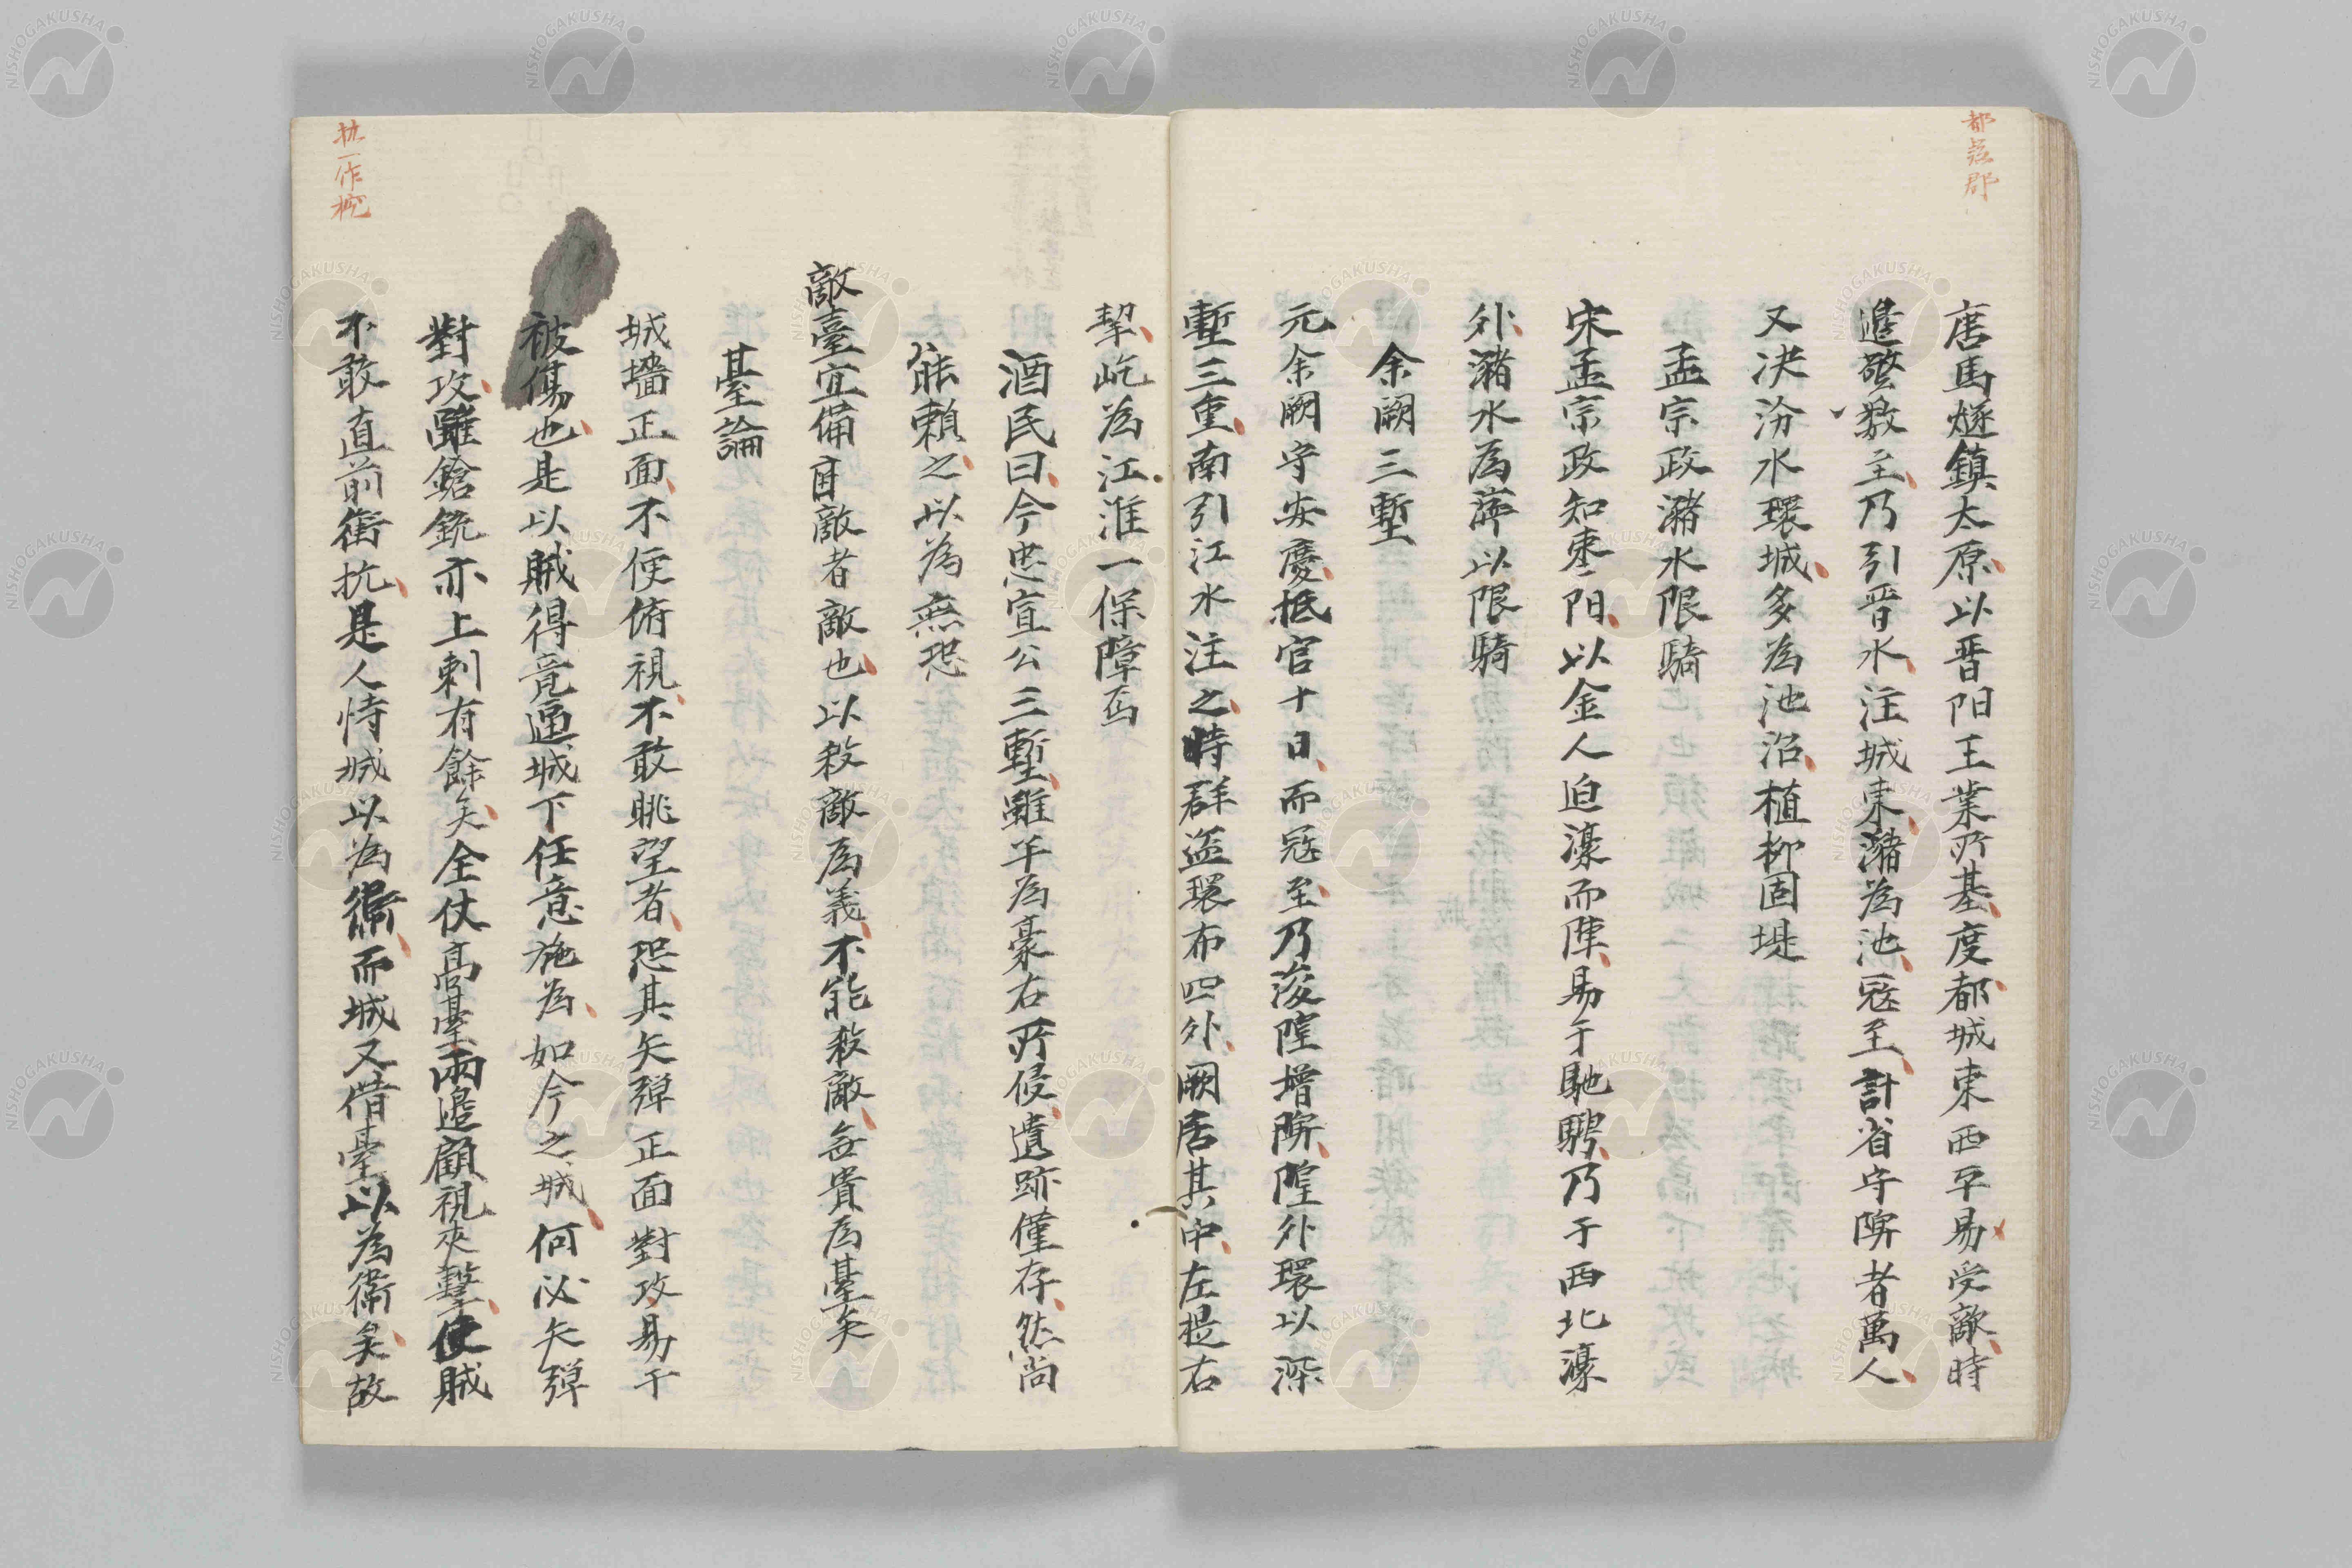 都恐郡
唐馬燧鎮太原以晋陽王業所基度都城東西平易受敵時
邉警数至乃引晋水注城東瀦為池寇至計省守陴者萬人
又决汾水環城多為池沼植柳固堤
孟宗政瀦水限騎
宋孟宗政知棗陽以金人迫濠而陣易于馳騁乃于西北濠
外瀦水為濘以限騎
余闕三塹
元余闕守安慶抵官十日而寇至乃浚隍增陴隍外環以深
塹三重南引江水注之時群盗環布四外闕居其中左提右
挈屹為江淮一保障焉
酒民曰今忠宣公三塹雖半為豪右所侵遺跡僅存然尚
能頼之以為無恐
敵臺宜備首敵者敵也以殺敵為義不能殺敵無貴為臺矣
臺論
城墻正面不便俯視不敢眺望者恐其矢弾正面對攻易于
被傷也是以賊得竟逼城下任意施為如今之城何必矢弾
對攻雖鎗銃亦上刺有餘矣全仗高臺兩邉顧視夾擊使賊
不敢直前衝抗是人恃城以為衛而城又借臺以為衛矣故
抗一作梲
NISHOGAKUSHA